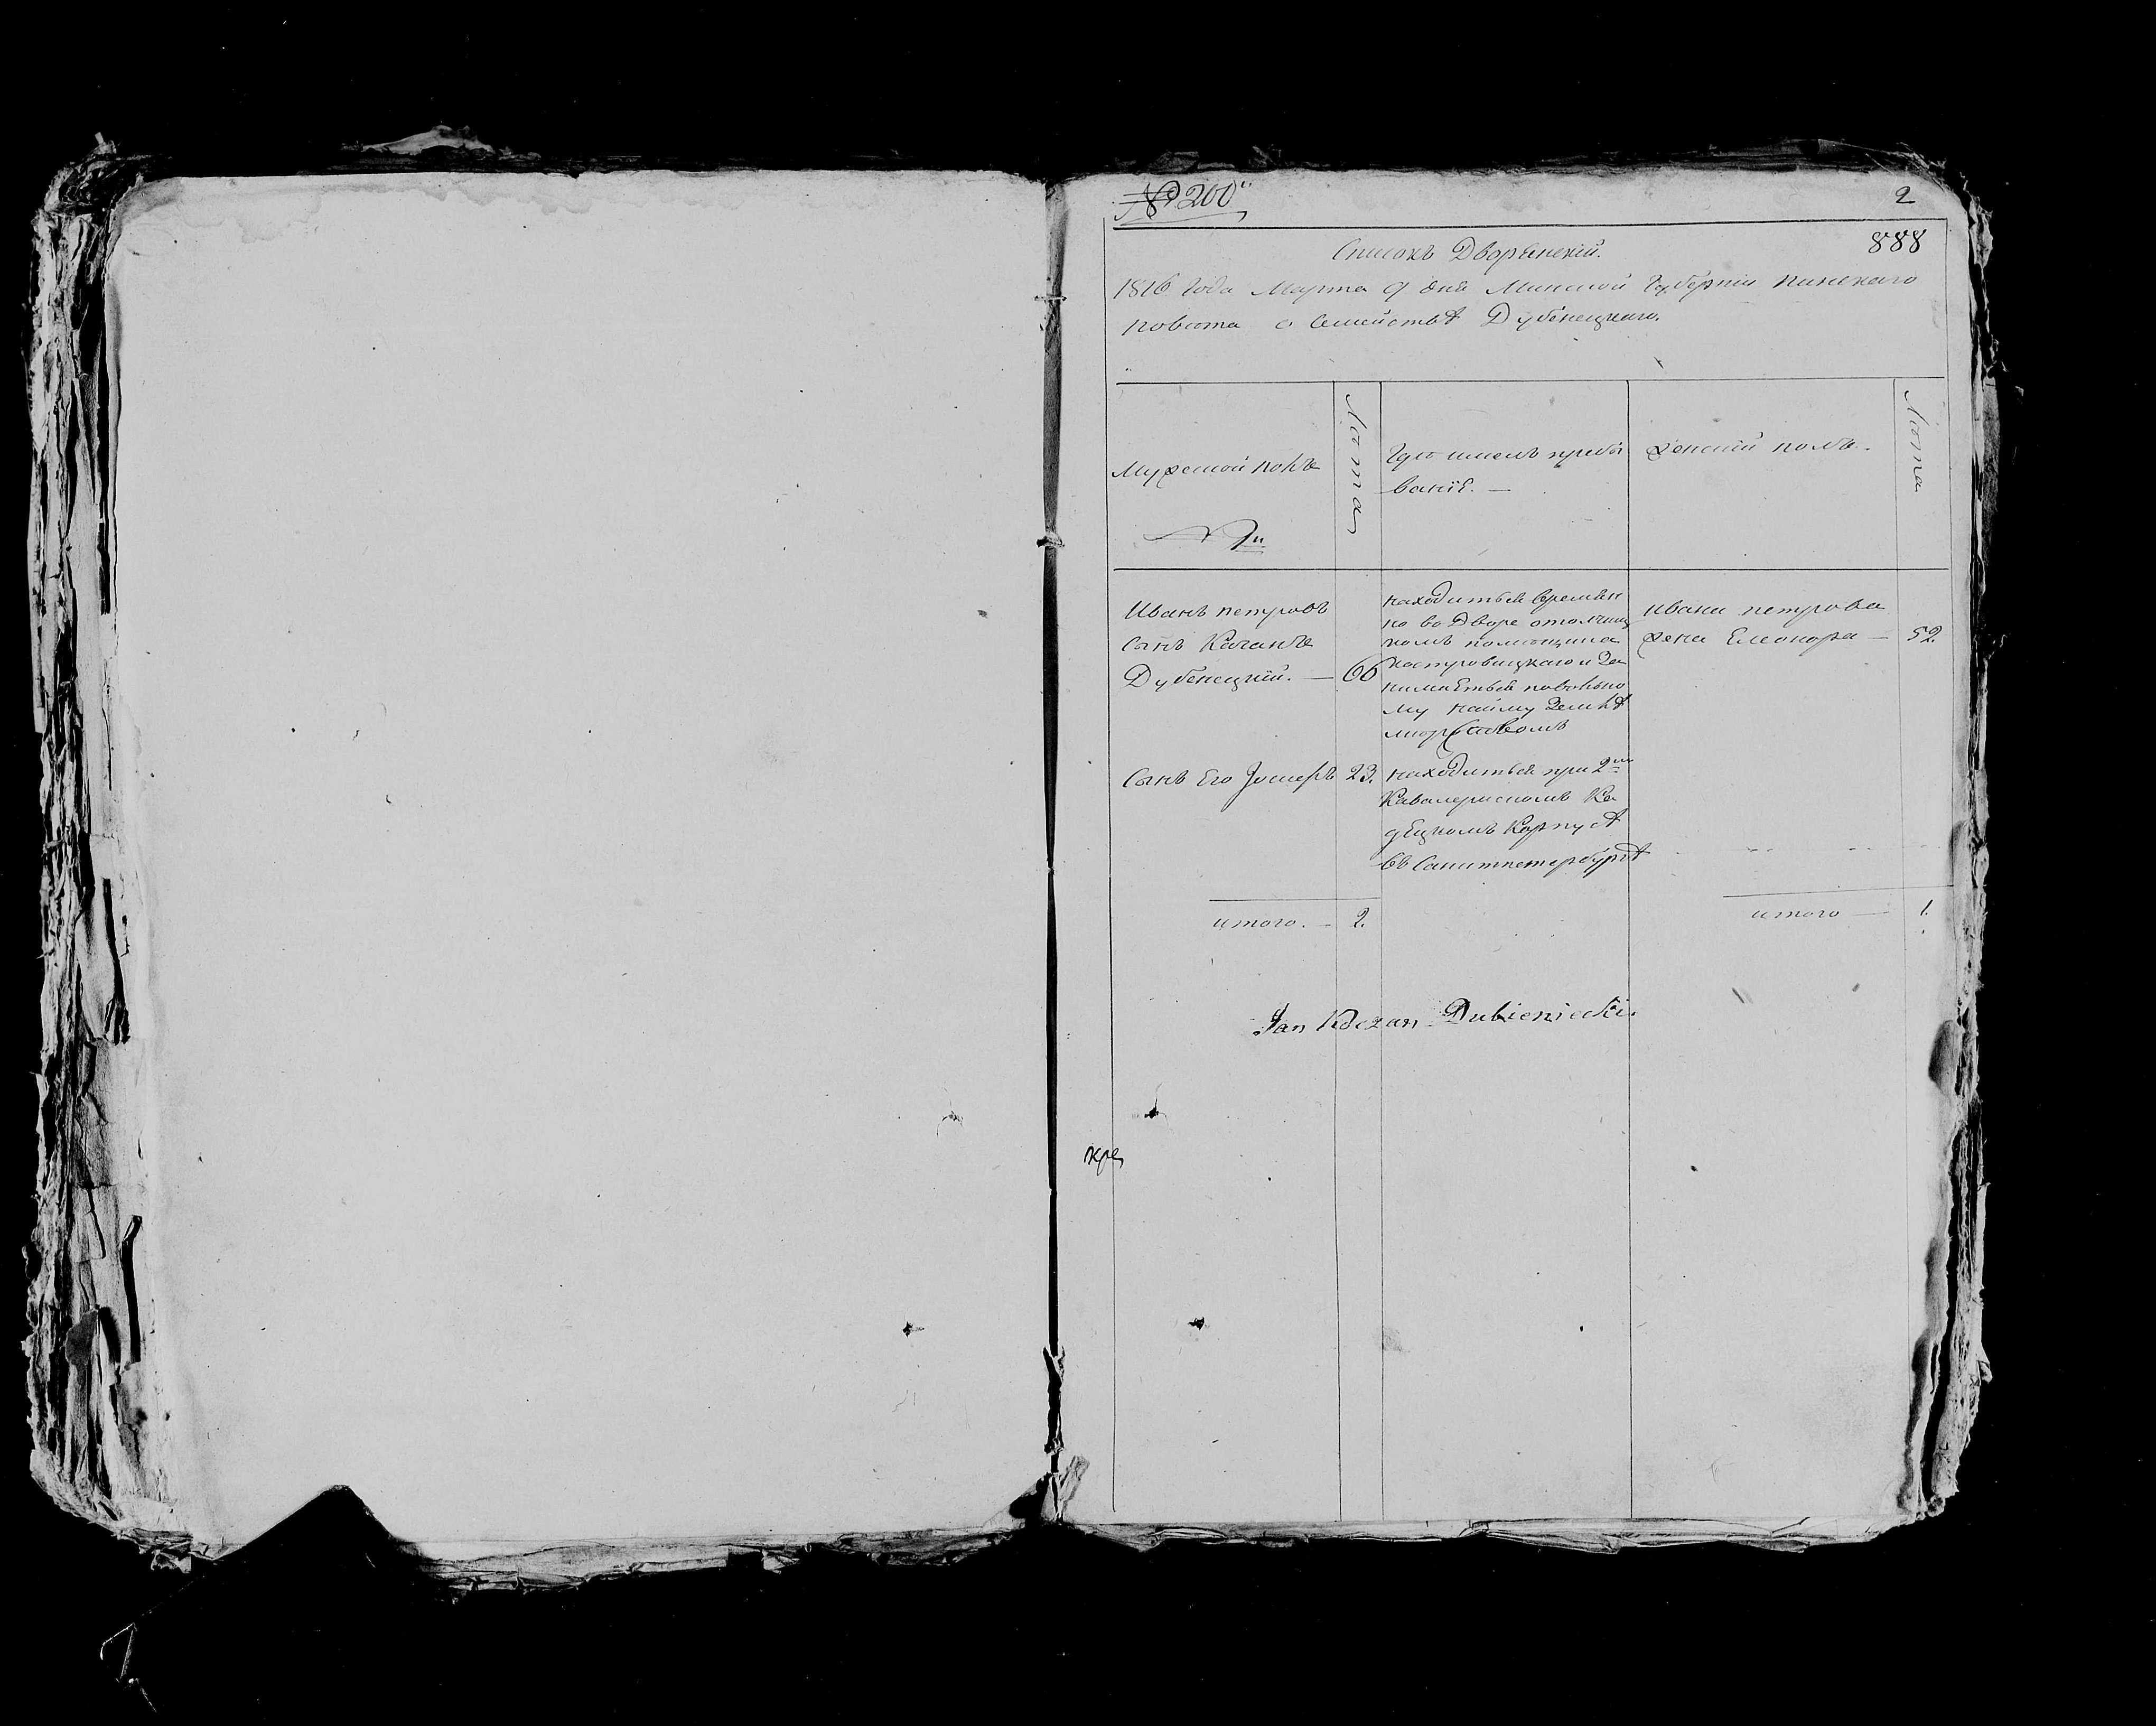 № 200
2
888
Списокъ Дворянскій.
1816 Года Марта 9 дня Минской Губерніи Пинскаго
повюта о Семействѣ Дубенецкаго.
Мужеской полъ
Люта
Гдю имелъ пребы
ваніе. —
Женскій полъ.
Люта
Иванъ петровъ
сынъ Качанъ
Дубенецкій. — 66
находиться времѣн
но во Дворе
помющика
и за
нимаеться повольно
му найму
ивана петрова
жена Елеонора — 52
Сынъ Его Іосифъ 23.
находиться при 2мъ
Кавалерискомъ Ка
децкомъ Корпусѣ
въ Санктпетербургѣ
итого. — 2.
итого — 1.
Jan Koczan Dubieniecki.